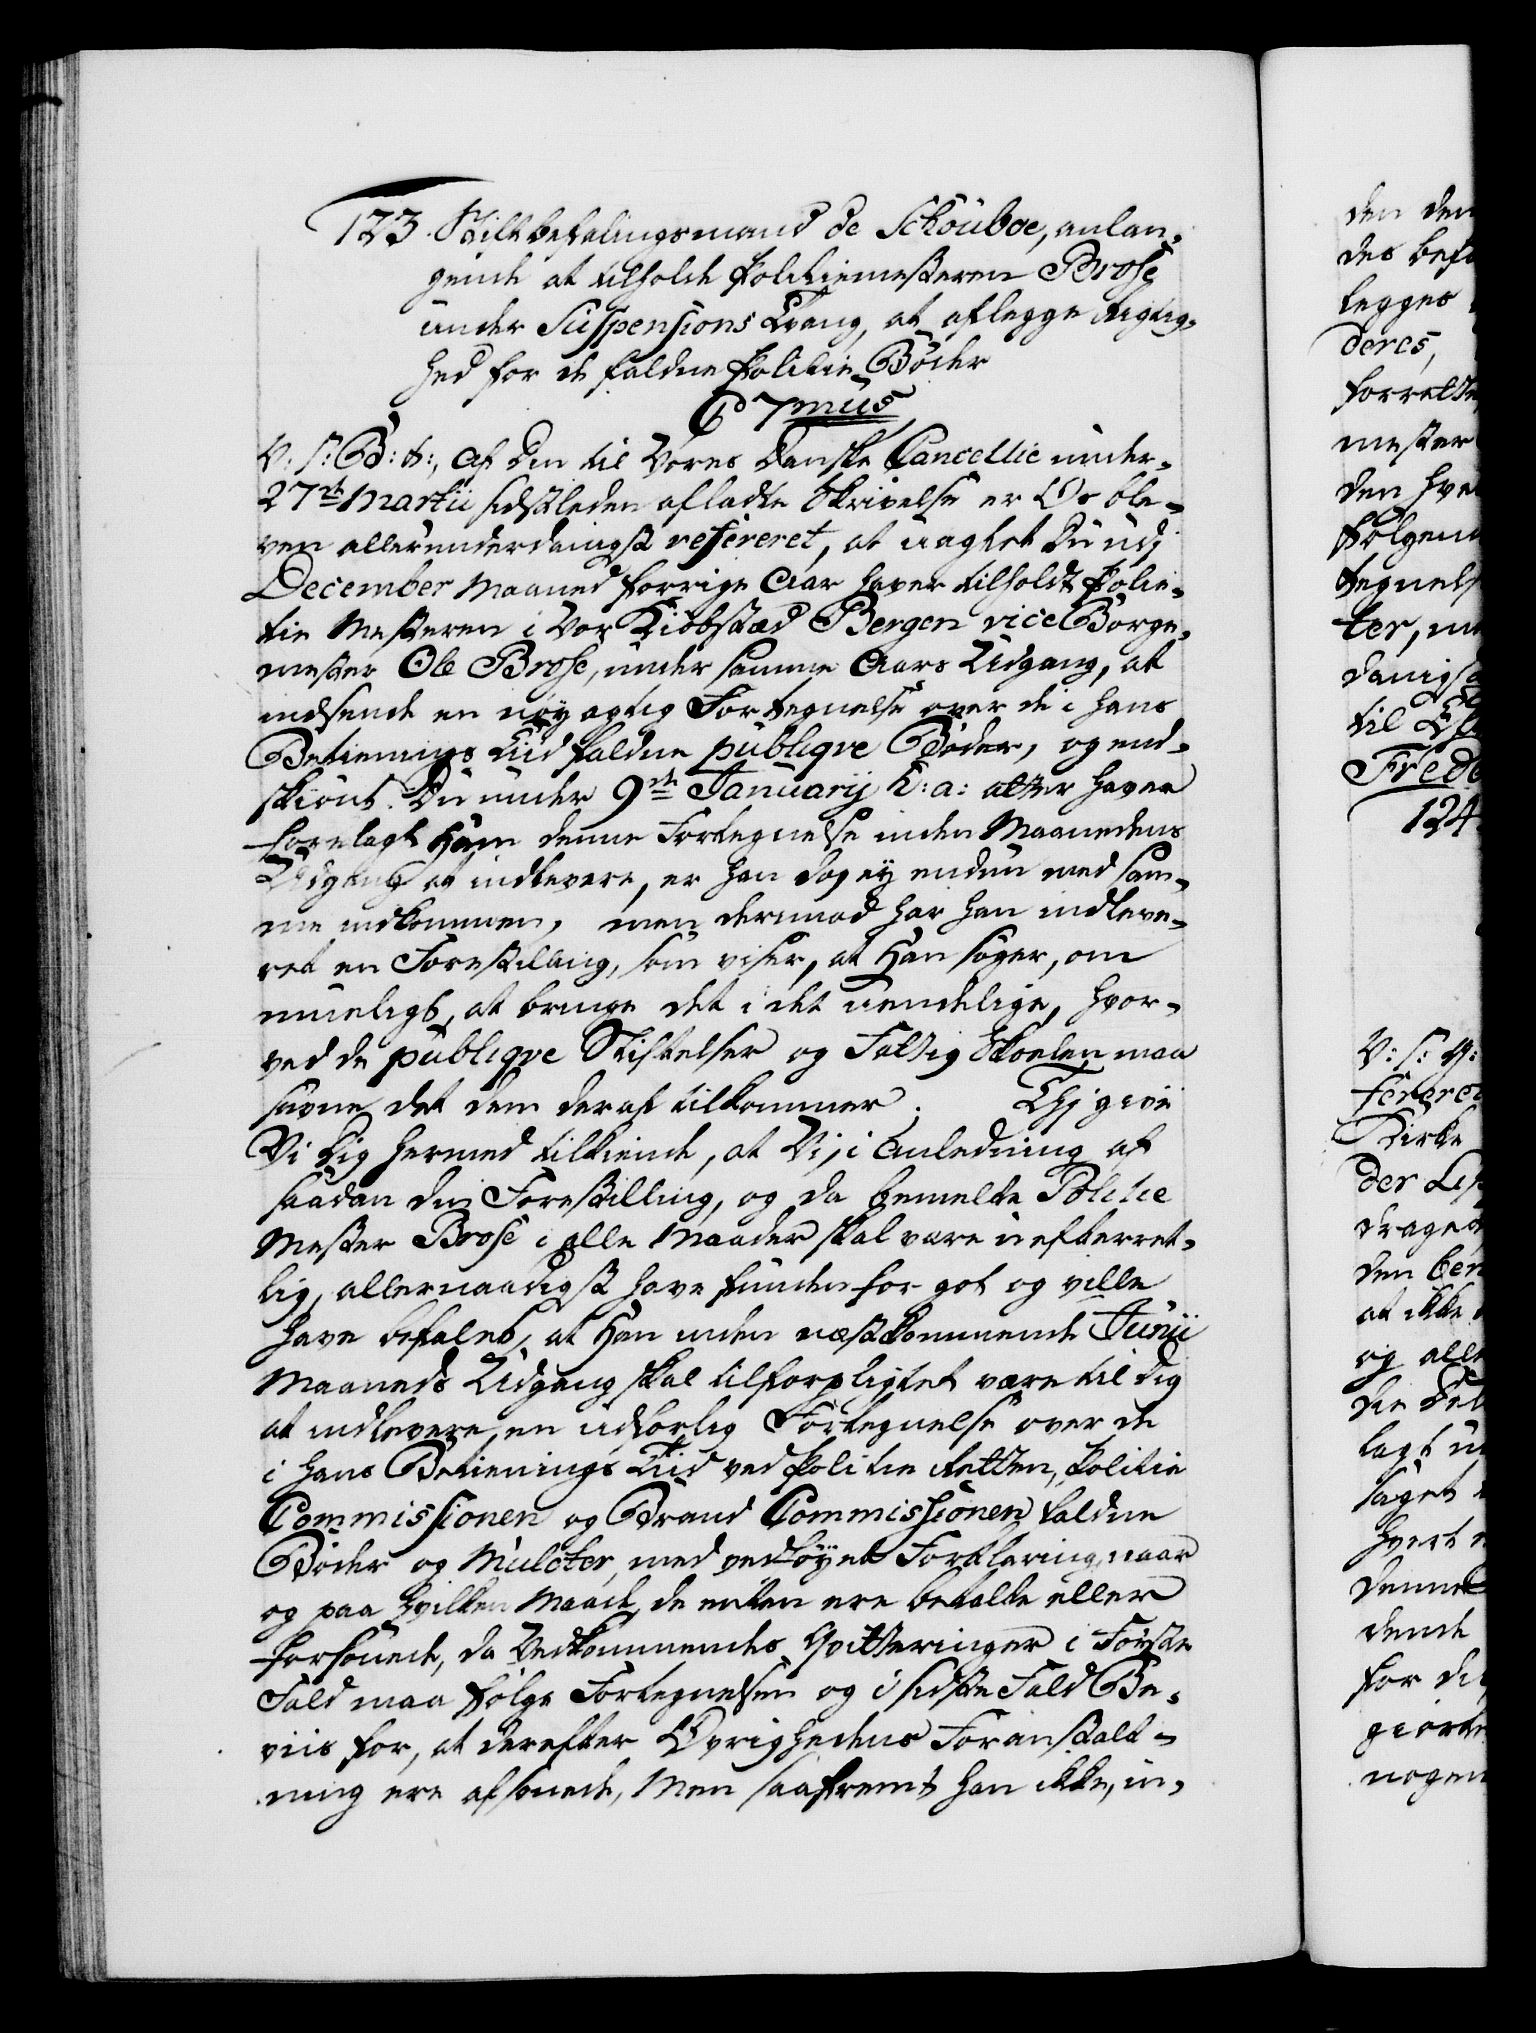 123. Stiftbefalingsmand de Schouboe, anlan-
gende at tilholde Politiemesteren Brose
under Suspensions Tvang, at aflegge Rigtig-
hed for de faldne Politie-Bøder
C 7mus
V: S: G: T:, Af din til Vores Danske Cancellie under
27de Martii sidstleden afladte Skrivelse er Os ble-
ven allerunderdanigst refereret, at uagtet Du udj
December Maaned forrige Aar haver tilholdt Poli-
tie Mesteren i Vor Kiøbstæd Bergen vice Borge-
mester Ole Brose, under samme Aars Udgang, at
indsende en nøyagtig Fortegnelse over de i hans
Betienings Tiid faldne publiqve Bøder, og end-
skiønt Du under 9de Januarij h: a: atter haver
forelagt Ham denne Fortegnelse inden Maanedens
Udgang at indlevere, er han dog ey endnu med sam-
me indkommen, men derimod har han indleve-
ret en Forestilling, som viser, at Han søger, om
mueligt, at bringe det i det uendelige, hvor-
ved de publiqve Stiftelser og Fattig Skoelen maa
savne det dem deraf tilkommer. Thj give
Vi Dig hermed tilkiende, at Vi, i Anledning af
saadan din Forestilling, og da bemelte Politie
Mester Brose i alle Maader skal være uefterret-
lig, allernaadigst have funden for got og ville
have befalet, at Han inden næstkommende Junii
Maaneds Udgang skal tilforpligtet være til Dig
at indlevere en udførlig Fortegnelse over de
i hans Betienings Tiid ved Politie Retten, Politie
Commissionen og Brand Commissionen faldne
Bøder og Mulcter, med vedføyet Forklaring, naar
og paa hvilken Maade, de enten ere betalte eller
forsonede, da Vedkommendes Qvitteringer i første
Fald maa følge Fortegnelsen og i sidste Fald Be-
viis for, at de efter Øvrighedens Foranstalt-
ning ere afsonede, Men saafremt han ikke, in-
den den
des befa
legges
deres,
forrette
mester
den hve
følgend
tegnels
ter, m
danigs
til
Frede
124.
V: S: G:
fereret
Kirke
der
drage
den ber
at ikke
og alle
die
lagt u
saget
hvert
denne
dende
for di
giorte
nogen